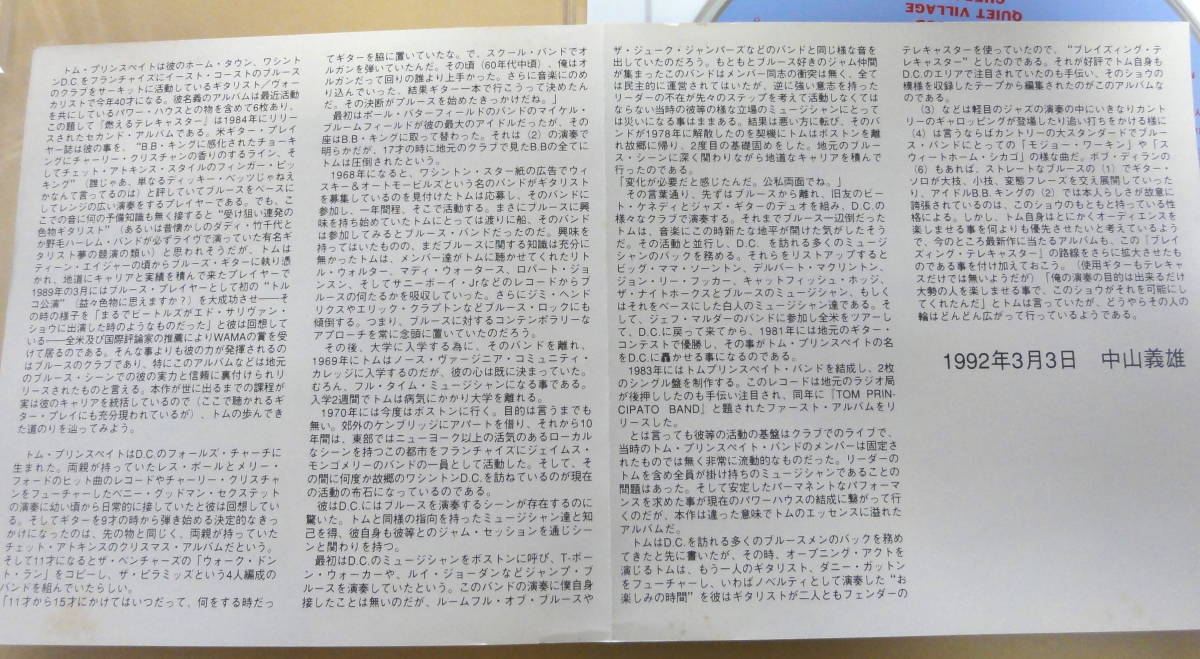 QUIET VILLAGE
トム・プリンスペイトは彼のホーム・タウン、ワシント
ンD.C.をフランチャイズにイースト・コーストのブルース
のクラブをサーキットに活動しているギタリスト／ヴォー
カリストで今年40才になる。彼名義のアルバムは最近活動
を共にしているパワー・ハウスとの物を含めて6枚あり、
この題して『燃えるテレキャスター』は1984年にリリー
スされたセカンド・アルバムである。米ギター・プレイ
ヤー誌は彼の事を、“B.B.キングに感化されたチョーキ
ングにチャーリー・クリスチャンの香りのするライン、そ
してチェット・アトキンス・スタイルのフィンガー・ピッ
キング”（誰じゃあ、単なるディッキー・ベッツじゃねえ
かなんて言ってるのは）と評していてブルースをベースに
してレンジの広い演奏をするプレイヤーである。でも、こ
こでの音に何の予備知識も無く接すると“受け狙い連発の
色物ギタリスト”（あるいは昔懐かしのダディ・竹千代と
か野毛ハーレム・バンドが必ずライヴで演っていた有名ギ
タリスト夢の競演の類い）と思われそうだが、トムは
ティーン・エイジャーの頃からブルース・ギターに執り憑
かれ、地道にキャリアと実績を積んで来たプレイヤーで
1989年の3月にはブルース・プレイヤーとして初の“トルコ
公演”（益々色物に思えますか？）を大成功させ――そ
の時の様子を「まるでビートルズがエド・サリヴァン・
ショウに出演した時のようなものだった」と彼は回想して
いる――全米及び国際評論家の推薦によりWAMAの賞を受
けて居るのである。そんな事よりも彼の力が発揮されるの
はブルースのクラブであり、特にこのアルバムなどは地元
のブルース・シーンでの彼の実力と信頼に裏付けられリ
リースされたものと言える。本作が世に出るまでの課程が
実は彼のキャリアを統括しているので（ここで聴かれるギ
ター・プレイにも充分現われているが）、トムの歩んでき
た道のりを辿ってみよう。
トム・プリンスペイトはD.C.のフォールズ・チャーチに
生まれた。両親が持っていたレス・ポールとメリー・
フォードのヒット曲のレコードやチャーリー・クリスチャ
ンをフューチャーしたベニー・グッドマン・セクステット
の演奏に幼い頃から日常的に接していたと彼は回想してい
る。そしてギターを9才の時から弾き始める決定的なきっ
かけになったのは、先の物と同じく、両親が持っていた
チェット・アトキンスのクリスマス・アルバムだという。
そして11才になるとザ・ベンチャーズの「ウォーク・ドン
ト・ラン」をコピーし、ザ・ピラミッズという4人編成の
バンドを組んでいたらしい。
「11才から15才にかけてはいつだって、何をする時だっ
てギターを脇に置いていたな。で、スクール・バンドでオ
ルガンを弾いていたんだ。その頃（60年代中頃）、俺はオ
ルガンだって回りの誰より上手かった。さらに音楽にのめ
り込んでいった、結果ギター一本で行こうって決めたん
だ。その決断がブルースを始めたきっかけだね。」
最初はポール・バターフィールドのバンドのマイケル・
ブルームフィールドが彼の最大のアイドルだったが、その
座はB.B.キングに取って替わった。それは（2）の演奏で
明らかだが、17才の時に地元のクラブで見たB.B.の全てに
トムは圧倒されたという。
1968年になると、ワシントン・スター紙の広告でウィ
スキー＆オートモービルズという名のバンドがギタリスト
を募集しているのを見付けたトムは応募し、そのバンドに
参加し、一年間程、そこで活動する。まさにブルースに興
味を持ち始めていたトムにとっては渡りに船、そのバンド
は参加してみるとブルース・バンドだったのだ。興味を
持ってはいたものの、まだブルースに関する知識は充分に
無かったトムは、メンバー達がトムに聴かせてくれたリト
ル・ウォルター、マディ・ウォータース、ロバート・ジョ
ンスン、そしてサニーボーイ・Jrなどのレコードからブ
ルースの何たるかを吸収していった。さらにジミ・ヘンド
リクスやエリック・クラプトンなどブルース・ロックにも
傾倒する。つまり、ブルースに対するコンテンポラリーな
アプローチを常に念頭に置いていたのだろう。
その後、大学に入学する為に、そのバンドを離れ、
1969年にトムはノース・ヴァージニア・コミュニティ・
カレッジに入学するのだが、彼の心は既に決まっていた。
むろん、フル・タイム・ミュージシャンになる事である。
入学2週間でトムは病気にかかり大学を離れる。
1970年には今度はボストンに行く。目的は言うまでも
無い。郊外のケンブリッジにアパートを借り、それから10
年間は、東部ではニューヨーク以上の活気のあるローカル
なシーンを持つこの都市をフランチャイズにジェイムス・
モンゴメリーのバンドの一員として活動した。そして、そ
の間に何度か故郷のワシントンD.C.を訪ねているのが現在
の活動の布石になっているのである。
彼はD.C.にはブルースを演奏するシーンが存在するのに
驚いた。トムと同様の指向を持ったミュージシャン達と知
己を得、彼自身も彼等とのジャム・セッションを通じシー
ンと関わりを持つ。
最初はD.C.のミュージシャンをボストンに呼び、T-ボー
ン・ウォーカーや、ルイ・ジョーダンなどジャンプ・ブ
ルースを演奏していたという。このバンドの演奏に僕自身
接したことは無いのだが、ルームフル・オブ・ブルースや
ザ・ジューク・ジャンパーズなどのバンドと同じ様な音を
出していたのだろう。もともとブルース好きのジャム仲間
が集まったこのバンドはメンバー同志の衝突は無く、全て
は民主的に運営されてはいたが、逆に強い意志を持った
リーダーの不在が先々のステップを考えて活動しなくては
ならない当時の彼等の様な立場のミュージシャンにとって
は災いになる事はままある。結果は悪い方に転び、そのバ
ンドが1978年に解散したのを契機にトムはボストンを離
れ故郷に帰り、2度目の基礎固めをした。地元のブルー
ス・シーンに深く関わりながら地道なキャリアを積んで
行ったのである。
「変化が必要だと感じたんだ。公私両面でね。」
その言葉通り、先ずはブルースから離れ、旧友のピー
ト・ケネディとジャズ・ギターのデュオを組み、D.C.の
様々なクラブで演奏する。それまでブルース一辺倒だった
トムは、音楽にこの時新たな地平が開けた気がしたそう
だ。その活動と並行し、D.C.を訪れる多くのミュージ
シャンのバックを務める。それらをリストアップすると
ビッグ・ママ・ソーントン、デルバート・マクリントン、
ジョン・リー・フッカー、キャットフィッシュ・ホッジ、
ザ・ナイトホークスとブルースのミュージシャン、もしく
はそれをベースにした白人のミュージシャン達である。そ
して、ジェフ・マルダーのバンドに参加し全米をツアーし
て、D.C.に戻って来てから、1981年には地元のギター・
コンテストで優勝し、その事がトム・プリンスペイトの名
をD.C.に轟かせる事になるのである。
1983年にはトムプリンスペイト・バンドを結成し、2枚
のシングル盤を制作する。このレコードは地元のラジオ局
が後押ししたのも手伝い注目され、同年に『TOM PRIN-
CIPATO BAND』と題されたファースト・アルバムをリ
リースした。
とは言っても彼等の活動の基盤はクラブでのライブで、
当時のトム・プリンスペイト・バンドのメンバーは固定さ
れたものでは無く非常に流動的なものだった。リーダーの
トムを含め全員が掛け持ちのミュージシャンであることの
問題はあった。そして安定したパーマネントなパフォーマ
ンスを求めた事が現在のパワーハウスの結成に繋がって行
くのだが、本作は違った意味でトムのエッセンスに溢れた
アルバムだ。
トムはD.C.を訪れる多くのブルースメンのバックを務め
てきたと先に書いたが、その時、オープニング・アクトを
演じるトムは、もう一人のギタリスト、ダニー・ガットン
をフューチャーし、いわばノベルティとして演奏した“お
楽しみの時間”を彼はギタリストが二人ともフェンダーの
テレキャスターを使っていたので、“ブレイズィング・テ
レキャスター”としたのである。それが好評でトム自身も
D.C.のエリアで注目されていたのも手伝い、そのショウの
模様を収録したテープから編集されたのがこのアルバムな
のである。
（3）などは軽目のジャズの演奏の中にいきなりカント
リーのギャロッピングが登場したり追い打ちをかける様に
（4）は言うならばカントリーの大スタンダードでブルー
ス・バンドにとっての「モジョー・ワーキン」や「ス
ウィートホーム・シカゴ」の様な曲だ。ボブ・ディランの
（6）もあれば、ストレートなブルースの（1）でギター・
ソロが大技、小技、変態フレーズを交え展開していった
り、アイドルB.B.キングの（2）では本人らしさが故意に
誇張されているのは、このショウのもともと持っている性
格による。しかし、トム自身はとにかくオーディエンスを
楽しませる事を何よりも優先させたいと考えているよう
で、今のところ最新作に当たるアルバムも、この『ブレイ
ズィング・テレキャスター』の路線をさらに拡大させたも
のである事を付け加えておこう。（使用ギターもテレキャ
スだけでは無いようだが）「俺の演奏の目的は出来るだけ
大勢の人を楽しませる事で、このショウがそれを可能にし
てくれたんだ」とトムは言っていたが、どうやらその人の
輪はどんどん広がって行っているようである。
1992年3月3日　中山義雄